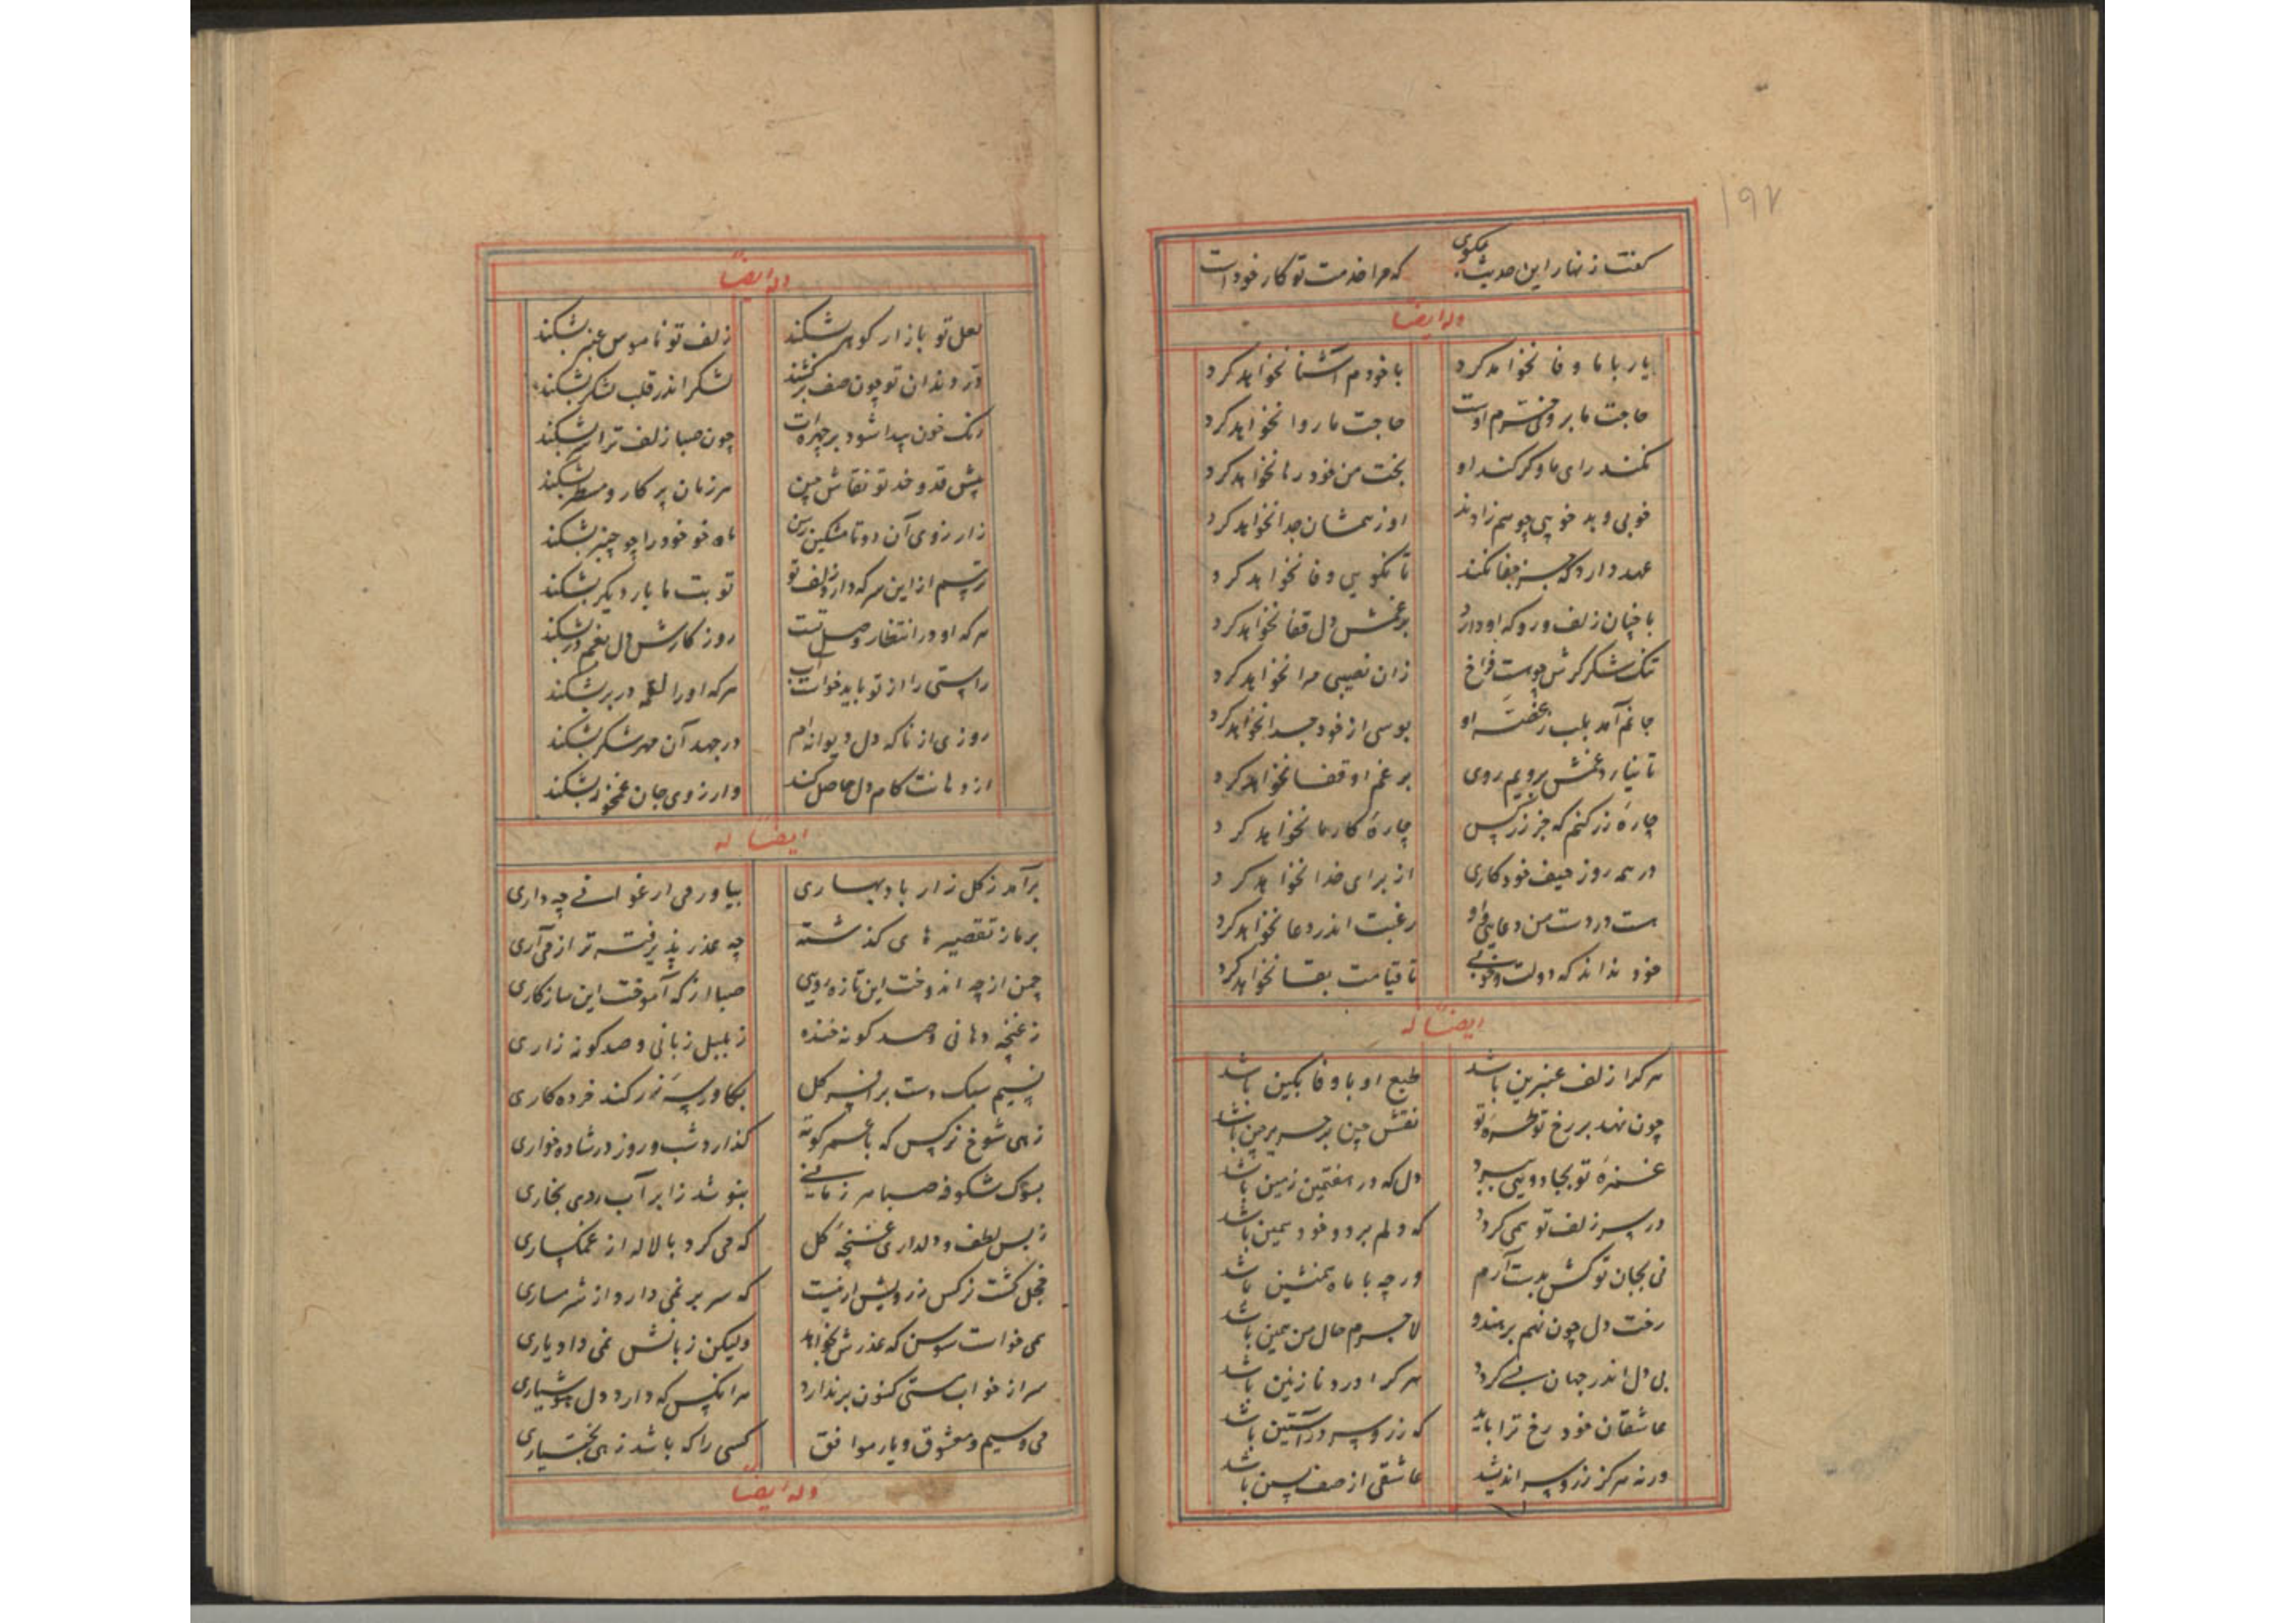 ۱۹۲
گفت زنهار این حدیث مگوی که مرا خدمت تو کار خود است
وله ایضاً
یار با ما وفا نخواهد کرد با خودم آشنا نخواهد کرد
حاجت ما بروی خرم اوست حاجت ما روا نخواهد کرد
نکند رای ما وگر کند او بخت من خود رها نخواهد کرد
خوبی و بد خویی چو هم زادند او ز همشان جدا نخواهد کرد
عهد دارد که جز جفا نکند تا نگویی وفا نخواهد کرد
با چنان زلف و رو که او دارد بر غمش دل قفا نخواهد کرد
تنگ شکر گرش چه هست فراخ زان نصیبی مرا نخواهد کرد
جانم آمد بلب ز غصه او بوسی از خود جدا نخواهد کرد
تا نیارد غمش برویم روی بر غم او قفا نخواهد کرد
چاره زر کنم که جز زر کس چاره کار ما نخواهد کرد
در همه روز حیف خود کاری از برای خدا نخواهد کرد
هست در دست من دعایی و او رغبت اندر دعا نخواهد کرد
خود نداند که دولت و خوبی تا قیامت بقا نخواهد کرد
ایضاً له
هر کرا زلف عنبرین باشد طبع او با وفا بکین باشد
چون نهد بر رخ تو طره تو نقش چین بر حریر چین باشد
غمزه تو بجادویی ببرد دل که در هفتمین زمین باشد
در سر زلف تو همی گردد که دلم برد و خود همین باشد
نی بجان تو کش بدست آرم ور چه با ماه همنشین باشد
رخت دل چون نهم بر هندو لاجرم حال من همین باشد
بی دل اندر جهان بسی گردد هر کرا درد نازنین باشد
عاشقان خود رخ ترا باید که زر و سر در آستین باشد
ورنه هر کز زر و سر اندیشد عاشقی از صف پسین باشد
وله ایضاً
لعل تو بازار گوهر بشکند زلف تو ناموس عنبر بشکند
در دندان تو چون صف برکشد لشکر اندر قلب شکر بشکند
رنگ خون پیدا شود بر چهره‌ات چون صبا زلف ترا سر بشکند
پیش قد و خد تو نقاش چین هر زمان پرکار و مسطر بشکند
ز آرزوی آن دو تا مشکین رسن ماه نو خود را چو چنبر بشکند
ترسم از این سر که دارد زلف تو توبت ما بار دیگر بشکند
هر که او در انتظار وصل تست روزگارش دل بغم در بشکند
راستی را از تو باید خواست هر که او را در بر بشکند
روزی از ناگه دل دیوانه‌ام در جهد آن مهر شکر بشکند
از دهانت کام دل حاصل کند وارزوی جان غمخور بشکند
ایضاً له
برآمد ز گلزار باد بهاری بیاور می ارغوانی چه داری
برماز تقصیرهای گذشته چه عذر پذیرفته تر از می آری
چمن از چه اندوخت این تازه رویی صبا از که آموخت این سازکاری
ز غنچه دهانی و صد گونه خنده ز بلبل زبانی و صد گونه زاری
نسیم سبک دست بر افسر گل کند خرده کاری
زهی شوخ نرگس که با عمر کوته گذارد شب و روز در شادخواری
بسوک شکوفه صبا هر زمانی بنوشد ز ابر آب روی بخاری
ز بس لطف و دلداری غنچه گل که می کرد با لاله از غمگساری
خجل گشت نرگس که سر بر نمی دارد از شرمساری
همی خواست سوسن که عذرش بخواهد ولیکن زبانش نمی داد یاری
سر از خواب مستی کنون برندارد هر آنکس که دارد دل هوشیاری
می و سیم و معشوق و یار موافق کسی را که باشد زهی بختیاری
وله ایضاً